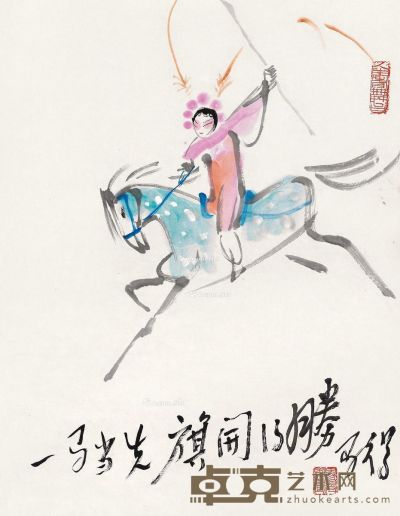 一马当先旗开得胜 马得
卓克艺术网
zhuokearts.com